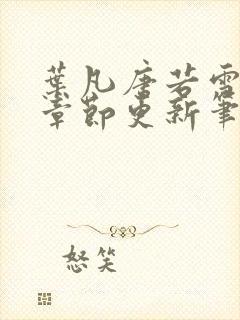 葉凡唐若雪
章節更新筆
怒笑